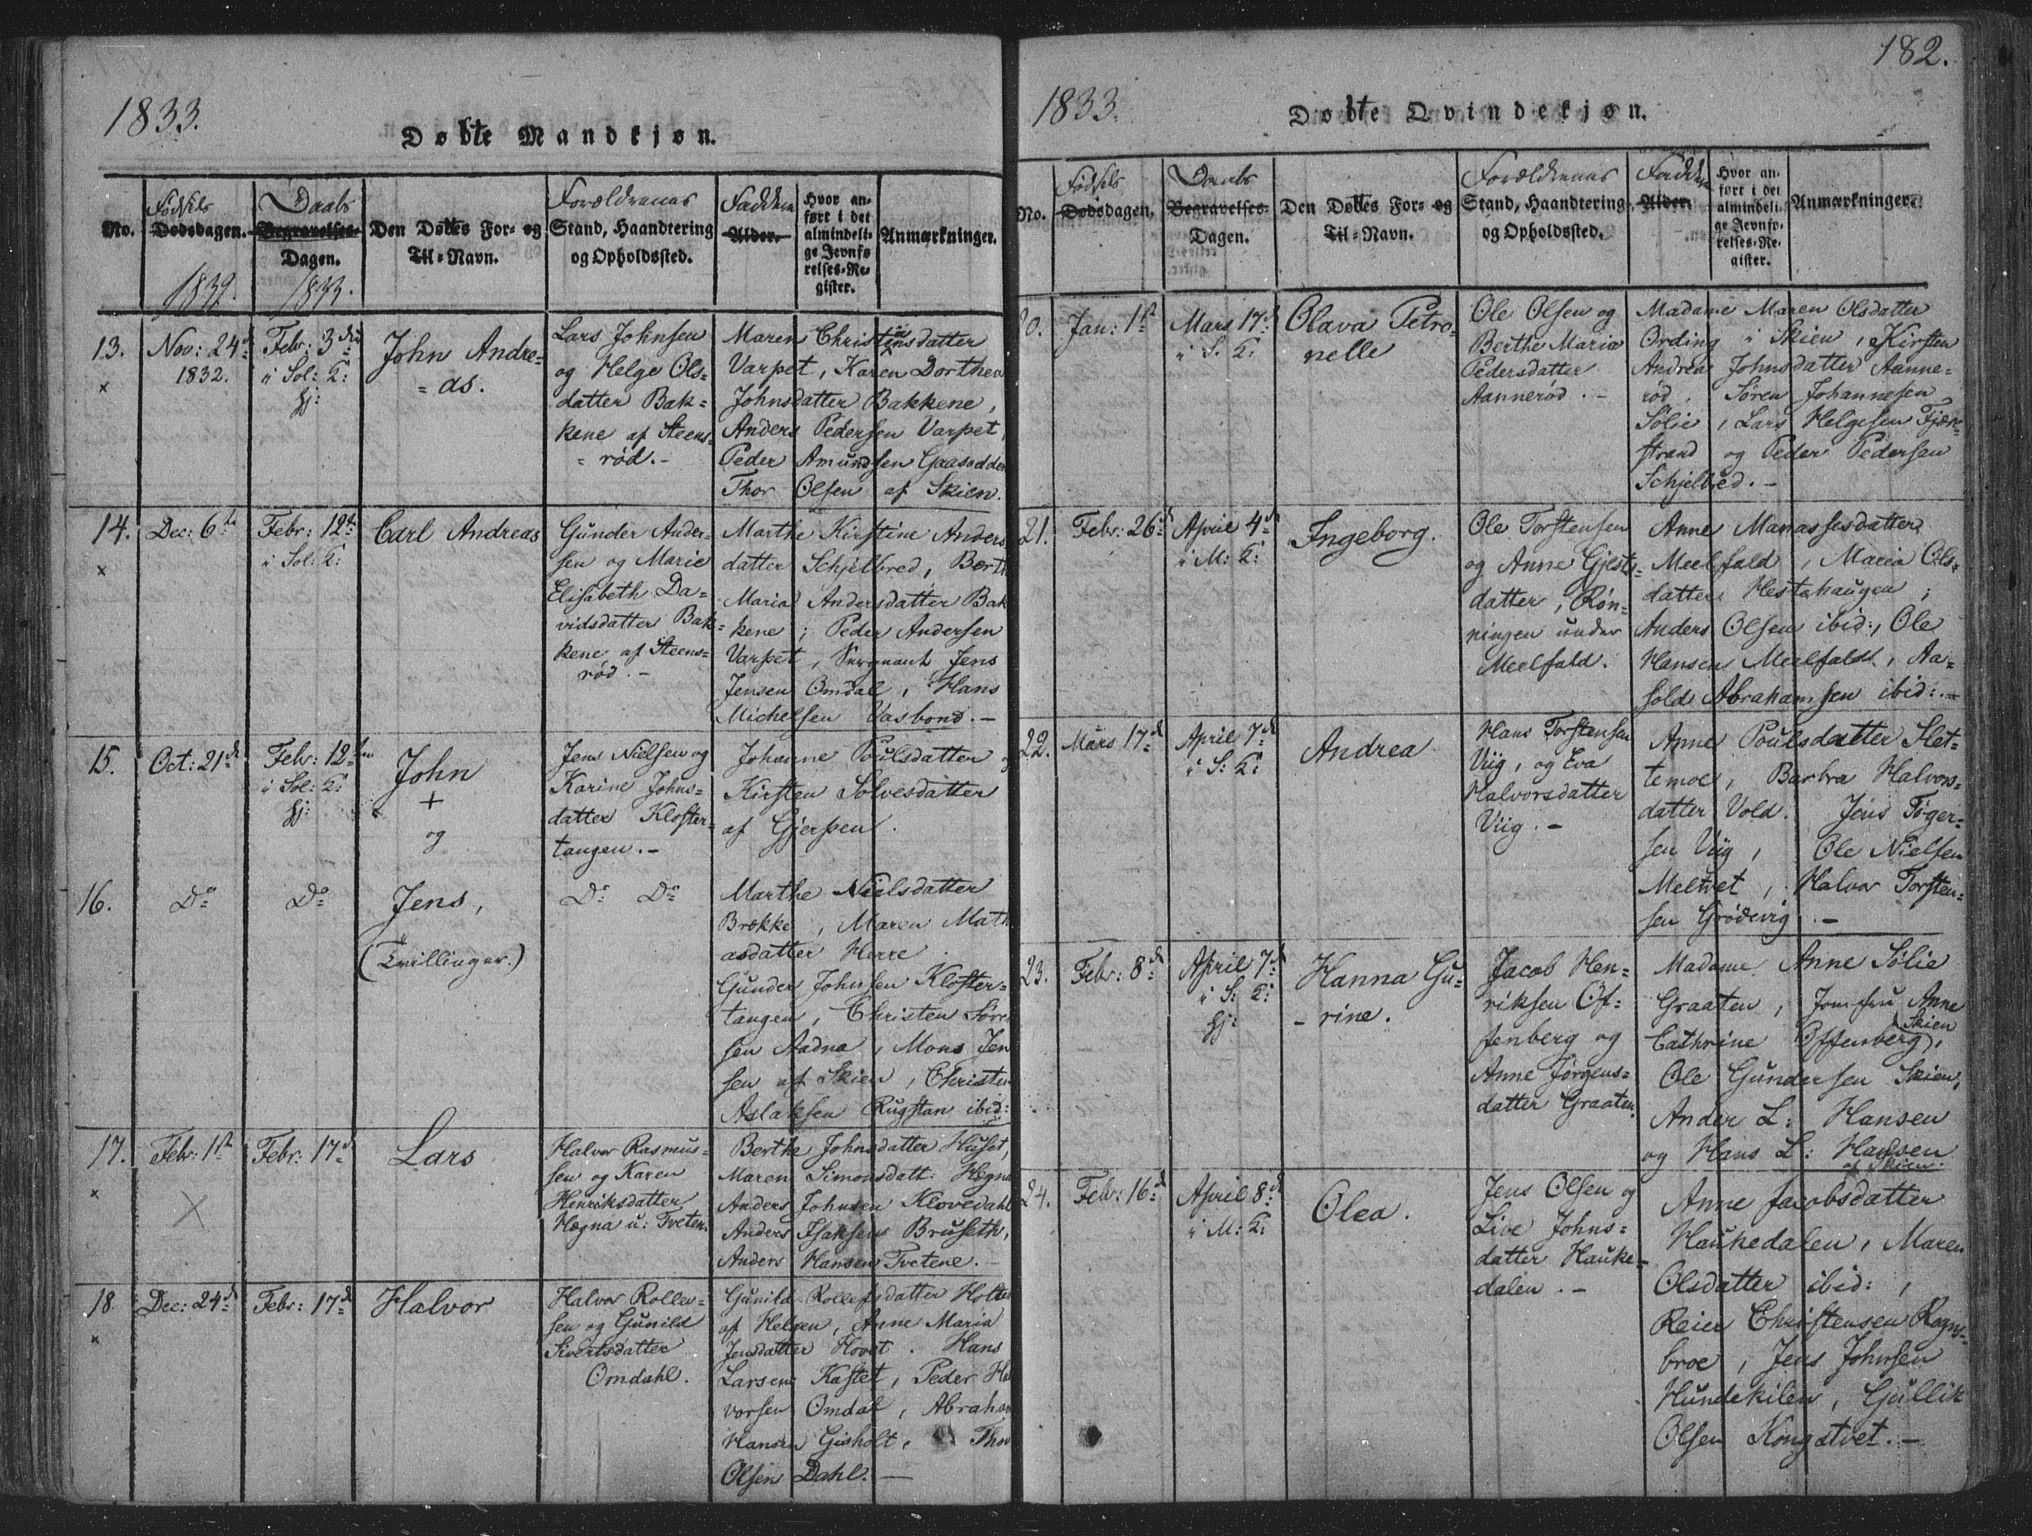 1833.
Døbte Mandkjøn.
No.
Fødsels
Dødsdagen.
1832.
Daabs
Begravelses-
Dagen.
1833.
Den Døbtes For- og
Til-Navn.
Forældrenes
Stand, Haandtering
og Opholdssted.
Faddere
Alder.
Hvor an-
ført i det
almindeli-
ge Jevnfø-
relses-Re-
gister.
Anmærkninger.
13.
×
Nov: 24d
1832.
Febr: 3die
i Sol: K:
hj:
John Andre-
= as.
Lars Johnsen
og Helge Ols-
datter Bak-
kene af Steens-
= rød. -
Maren Christensdatter
Varpet, Karen Dorthea
Johnsdatter Bakkene,
Anders Pedersen Varpet,
Peder Amundsen Gaasodden
Thor Olsen af Skien.
14.
×
Dec: 6te
Febr: 12te
i Sol: K:
Carl Andreas
Gunder Ander-
sen og Marie
Elisabeth Da-
vidsdatter Bak-
kene af Steens-
rød. -
Marthe Kirstine Anders
datter Schjelbred, Berth
Maria Andersdatter Bak
kene ; Peder Andersen
Varpet, Sergeant Jens
Jensen Omdal, Hans
Michelsen Vasbond. -
15.
Oct: 21d
Febr: 12te
i Sol: K:
hj:
John
+
og
Jens Nielsen og
Karine Johns-
datter Kloster-
tangen. -
Johanne Poulsdatter og
Kirsten Solvesdatter
af Gjerpen.
16.
Do
Do
Jens,
(Tvillinger.)
Do Do
Marthe Nielsdatter
Brekke, Maren Math
asdatter Herre.
Gunder Johnsen Kloster-
tangen, Christen Søren
sen Aadna, Mons Jen
sen af Skien, Christen
Aslaksen Rugstan ibid:
17.
×
Febr: 1st
×
Febr: 17d
Lars
Halvor Rasmus-
sen og Karen
Henriksdatter
Hægna u: Tveten.
Berthe Johnsdatter Huset,
Maren Simonsdatt: Hægna
Anders Johnsen Klovedahl
Anders Isaksen Bruseth,
Anders Hansen Tvetene. -
18.
×
Dec: 24d
Febr: 17d
Halvor
Halvor Rollev-
sen og Gunild
Sivertsdatter
Omdahl.
Gunild Rollefsdatter Holten
af Helgen, Anne Maria
Jensdatter Hovet. Hans
Larsen Kastet, Peder Hal
vorsen Omdal, Abraham
Hansen Gisholt, Thor
Olsen Dahl. -
182.
1833.
Døbte Qvindekjøn.
No.
Fødsels
Dødsdagen.
Daabs
Begravelses-
Dagen.
Den Døbtes For- og
Til-Navn.
Forældrenes
Stand, Haandtering
og Opholdssted.
Faddere
Alder.
Hvor an-
ført i det
almindeli-
ge Jevnfø-
relses-Re-
gister.
Anmærkninger.
20.
Jan: 1st
Mars 17d
i S: K:
Olava Petro-
nelle
Ole Olsen og
Berthe Maria
Pedersdatter
Aannerød. -
Madame Maren Olsdatter
Ording i Skien, Kirsten
Andrea Johnsdatter Aanne-
rød. Søren Johannesen
Sølie, Lars Helgesen Fjæn-
strand og Peder Pedersen
Schjelbred. -
21.
Febr: 26d
April 4d
i M: K:
Ingeborg.
Ole Torstensen
og Anne Gjests-
datter, Røn-
ningen under
Meelfald.
Anne Manassesdatter
Meelfald, Maria Ols-
datter Hestehaugen,
Anders Olsen ibid:, Ole
Hansen Meelfald, Aa-
sold Abrahamsen ibid: -
22.
Mars 17d
April 7d
i S: K:
Andrea
Hans Torstensen
Viig, og Eva
Halvorsdatter
Viig. -
Anne Poulsdatter Slet-
temoe, Barbra Halvors-
datter Vold. Jens Tøger-
sen Viig, Ole Nielsen
Meltvet, Halvor Torsten-
sen Grødevig. -
23.
Febr: 8d
April 7d
i S: K:
hj:
Hanna Gu-
- rine.
Jacob Hen-
riksen Of-
fenberg og
Anne Jørgens-
datter Graaten
Madame Anne Sølie
Graaten, Jomfru Anne
Cathrine Offenberg, Skien
Ole Gundersen Skien,
Ander L: Hansen
og Hans L: Hansen
af Skien.
24.
Febr: 16d
April 8d
i M: K:
Olea.
Jens Olsen og
Live Johns-
datter Hauke-
dalen. -
Anne Jacobsdatter
Haukedalen, Maren
Olsdatter ibid:,
Reier Christensen Rogns-
broe, Jens Johnsen
Hundekilen, Gjullik
Olsen Kongstvet. -